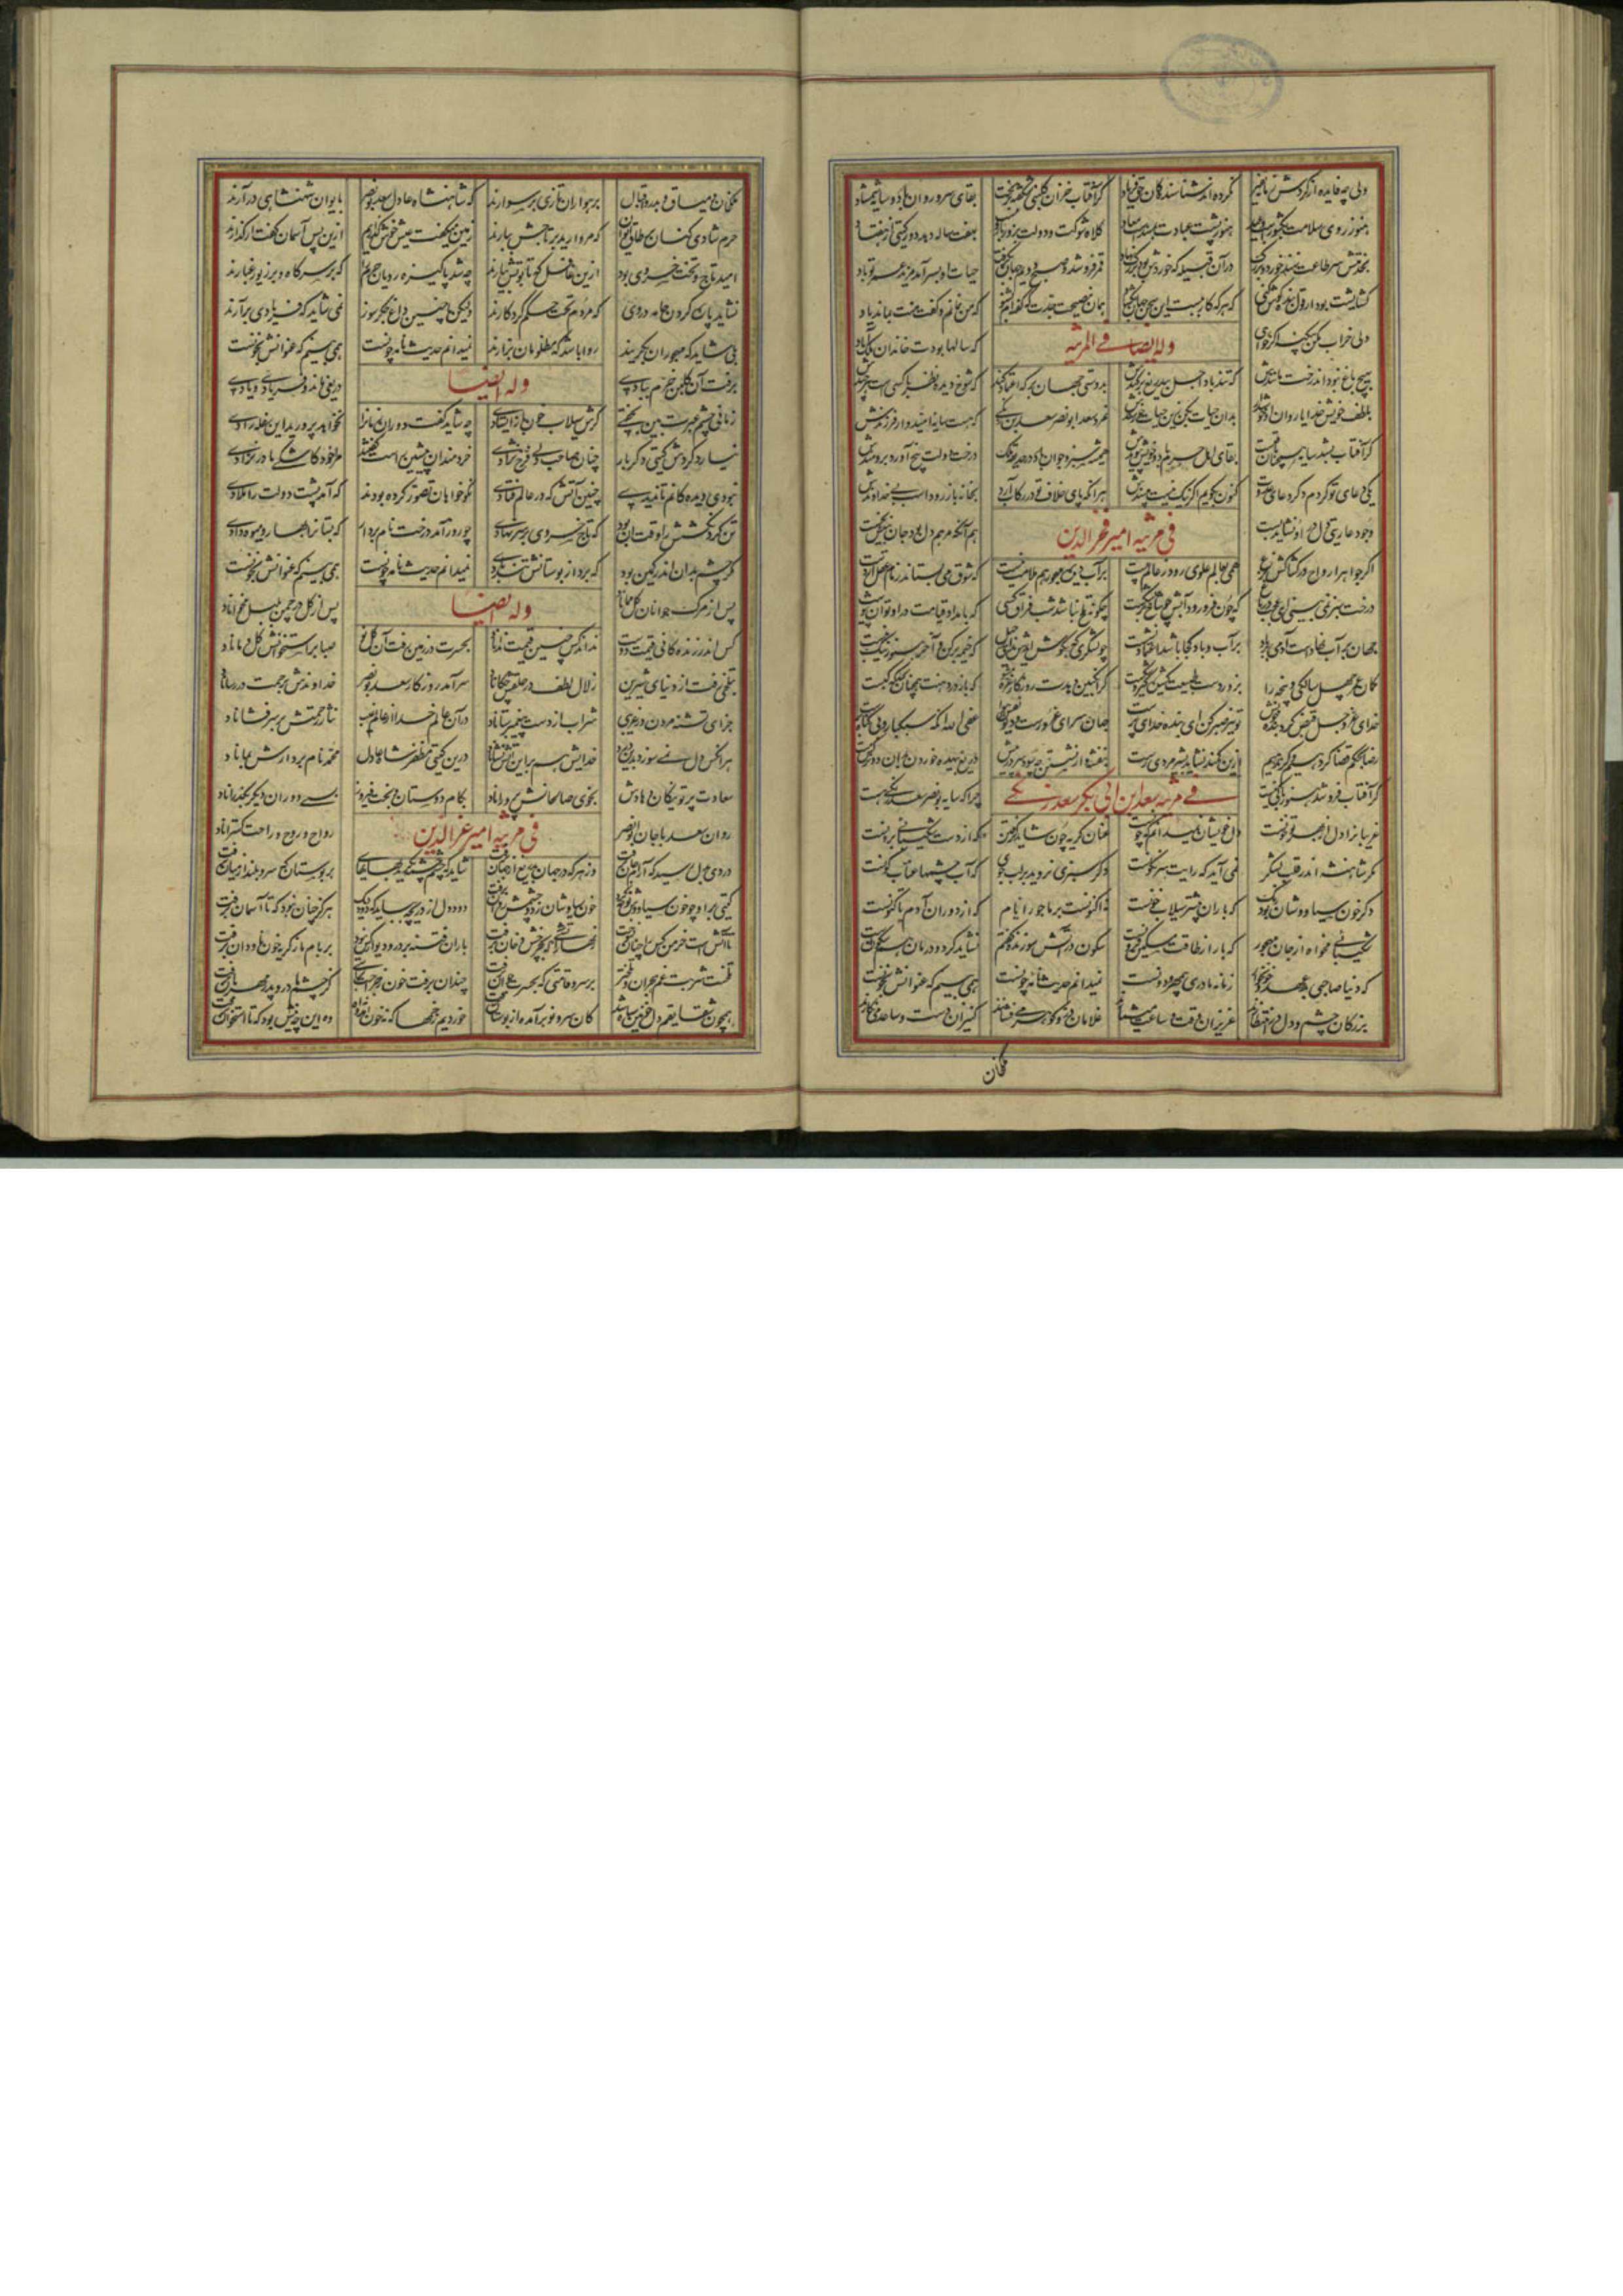 ولی چه فایده از گردش زمانه نفیر نکرده‌اند شناسندگان حق فریاد گر آفتاب خزان گلبن شکفته بریخت بقای سرو روان باد و سایه شمشاد
هنوز روی سلامت بکشورست و عبید هنوز پشت عبادت کلاه شوکت و دولت بهفت ساله دهد دور گیتی از هفتاد
بخدمتش سر طاعت نهند خورد و بزرگ در آن قبیله که خوردش بود بزرگ نهاد قمر فرو شد و صبح دوم جهان بگرفت حیات او بسر آمد مزید عمر تو باد
گشایشت بود ار قول بنده گوش کنی که هر که کار نبست این سخن جهان نگشاد همان نصیحت جدت که گفته‌ام بشنو که من نمانم و گفت منت بماند یاد
ولی خراب مکن بیگنه اگر خواهی که سالها بودت خاندان و ملک آباد
وله ایضا فی المرثیه
بهیچ باغ نبود آن درخت مانندش که تندباد اجل بیدریغ برکندش بدوستی جهان بر که اعتماد کند که شوخ دیده نظر با کسی است هر چندش
بلطف خویش خدایا روان او خوش دار بدان حیات بکن زین حیات خرسندش نمرد سعد ابونصر سعد بن زنگی که هست سایه امیدوار فرزندش
گر آفتاب بشد سایه همچنان باقیست بقای اهل حرم باد و خویش و پیوندش همیشه سبز و جوان باد در حدیقه ملک درخت دولت بیخ آور برومندش
یکی دعای تو کردم دگر دعای عدوت کنون بگویم اگر نیک نیست مپسندش هر آنکه پای خلاف تو در رکاب آرد بخانه باز رود اسب بی خداوندش
وجود عاریتی دل درو نشاید بست هم آنکه مرهم دل بود جان بخست
فی مرثیه امیر فخرالدین
اگر جواهر ارواح در کشاکش نزع همی بعالم علوی رود ز عالم پست بر آب دیده مهجور هم ملامت نیست که شوق می بستاند زمام عقل از دست
درخت سبز نبینی که ای عجب در باغ که چون فرو رود آتش بشاخ تر بگریست چگونه تلخ نباشد شب فراق کسی که بامداد قیامت درو توان پیوست
جهان بر آب نهادست و آدمی بر باد بر آب و باد کجا باشد اعتماد نشست چو لشکری که بگوش آیدش ندای رحیل که خیمه برکن و آخر هنوز
کمان عمر چهل سالگی و پنجه را بزور دست طبیعت شکن گر انگبین دهدت روزگار غره که باز در دهنت همچنان کند کبست
خدای عز و جل قبض کرد بنده خویش تو نیز صبر کن ای بنده خدای پرست جهان سرای غرورست و دیو نفس و هوا عفی الله آنکه سبکبار و بی گناه برست
رضا بحکم قضا گر دهیم و گر ندهیم ازین کمند نشاید بشیرمردی رست بنفشه‌وار نشستن چه سود سر در پیش دریغ بیهده خوردن بدان دو نرگس مست
گر آفتاب فرو شد هنوز باکی نیست چرا که سایه بونصر سعد زنگی هست
فی مرثیه سعد ابن ابی بکر سعد زنگی
غریبانرا دل از بهر تو خونست دل خویشان نمیدانم که چونست عنان گریه چون شاید گرفتن که از دست شکیبائی برونست
مگر شاهنشه اندر قلب لشکر نمی آید که رایت سرنگونست دگر سبزی نروید بر لب جوی که آب چشمها عناب گونست
دگر خون سیاووشان بود رنگ که باران بیشتر سیلاب خونست نه اکنونست بر ما جور ایام که از دوران آدم تا کنونست
شکیبائی مخواه از جان مهجور که بار از طاقت مسکین فزونست سکون در آتش سوزنده گفتم نشاید کرد و درمان هم سکونست
که دنیا صاحبی بدعهد و خونخوار زمانه مادری بیمهر و دونست نمیدانم حدیث نامه چونست همی بینم که عنوانش بخونست
بزرگان چشم و دل در انتظارند عزیزان وقت و ساعت میشمارند غلامان در و گوهر میفشانند کنیزان دست و ساعد می نگارند
ملکخان و میساق و بدر و قبال برهواران تازی بر سوارند که شاهنشاه عادل سعد بونصر بایوان شهنشاهی درآرند
حرم شادی کنان بر طاق ایوان که مروارید بر تاجش ببارند زمین میگفت عیش خوش گذاریم ازین پس آسمان گفت ار گذارند
امید تاج و تخت خسروی بود ازین غافل که تابوتش بیارند چه شد پاکیزه رویان حرم را که بر سر کاه و بر زیور غبارند
نشاید پاره کردن جامه و روی که مردم تحت حکم کردگارند ولیکن با چنین داغ جگرسوز نمی شاید که فریادی برآرند
بلی شاید که مهجوران بگریند روا باشد که مظلومان بزارند نمیدانم حدیث نامه چونست همی بینم که عنوانش بخونست
وله ایضا
برفت آن گلبن خرم ببادی دریغی ماند و فریادی و یادی
زمانی چشم عبرت بین بخفتی گرش سیلاب خون باز ایستادی چه شاید گفت دوران زمانرا نخواهد پرورید این سفله رادی
نیارد گردش گیتی دگر بار چنان صاحب دلی فرخ نژادی خردمندان پیشین راست گفتند مرا خود کاشکی مادر نزادی
نبودی دیدگانم تا ندیدی چنین آتش که در عالم فتادی نکوخواهان تصور کرده بودند که آمد پشت دولت را ملاذی
تن گردنکشش را وقت آن بود که تاج خسروی بر سر نهادی چو روز آمد درخت نام بردار که بستانرا بهار و میوه دادی
مگر چشم بدان اندر کمین بود که برد از بوستانش تندبادی نمیدانم حدیث نامه چونست همی بینم که عنوانش بخونست
وله ایضا
پس از مرگ جوانان گل مماناد پس از گل در چمن بلبل مخواناد
کس اندر زندگانی قیمت دوست نداند کس چنین قیمت نداناد بحسرت در زمین رفت آن گل نو صبا بر استخوانش گل دماناد
بتلخی رفت از دنیای شیرین زلال لطف در حلقش چکاناد سرآمد روزگار سعد بونصر خداوندش برحمت در رساناد
جزای تشنه مردن در غریبی شراب از دست پیغمبر ستاناد در آن عالم خدا از عالم غیب نثار رحمتش بر سر فشاناد
هر آنکس دل نمی سوزد بدین درد خدایش هم براین آتش نشاناد درین گیتی مظفر شاه عادل محمد نام بردارش بماناد
سعادت پرتو نیکان دهادش بخوی صالحانش پروراناد بکام دوستان و بخت فیروز بسی دوران دیگر بگذراناد
روان سعد با جان ابونصر رواح و روح و راحت گستراناد
فی مرثیه امیر عزالدین
دردی بدل رسید که آرام جان برفت وز هر که در جهان بدریغ از جهان برفت شاید که چشم چشمه بگرید بهایهای بر بوستان که سرو بلند از میان برفت
خون سیاوشان زد و چشمش روان برفت دود دل از دریچه برآید که هرگز چنان نبود که تا آسمان برفت
باران فتنه بر در و دیوار کس نبود بر بام ما ز گریه خون ناودان برفت
تلخست شربت غم هجران و تلختر بر سرو قامتی که بحسرت جوان برفت چندان برفت خون ز جراحت
همچون شقایقم دل خونین سیاه شد کان سرو نو برآمده از بوستان برفت خوردیم زخمها که نه خون آمد و نه آه وه این چه نیش بود که تا استخوان برفت